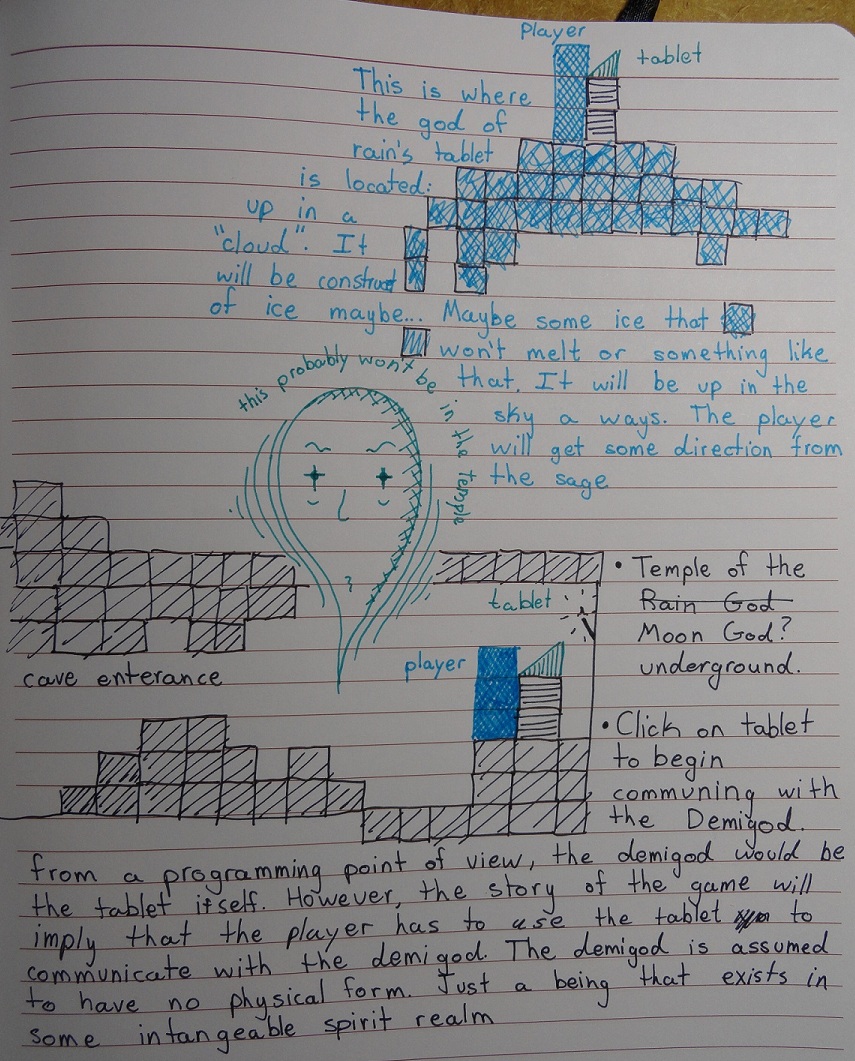 player
tablet
This is where
the god of
rain's tablet
is located:
up in a
"cloud". It
will be construct
of ice maybe... Maybe some ice that
won't melt or something like
that. It will be up in the
sky a ways. The player
will get some direction from
the sage
this probably won't be in the temple
?
• Temple of the
Rain God
Moon God?
underground.
tablet
player
cave enterance
• Click on tablet
to begin
communing with
the Demigod.
from a programming point of view, the demigod would be
the tablet itself. However, the story of the game will
imply that the player has to use the tablet to
communicate with the demigod. The demigod is assumed
to have no physical form. Just a being that exists in
some intangeable spirit realm